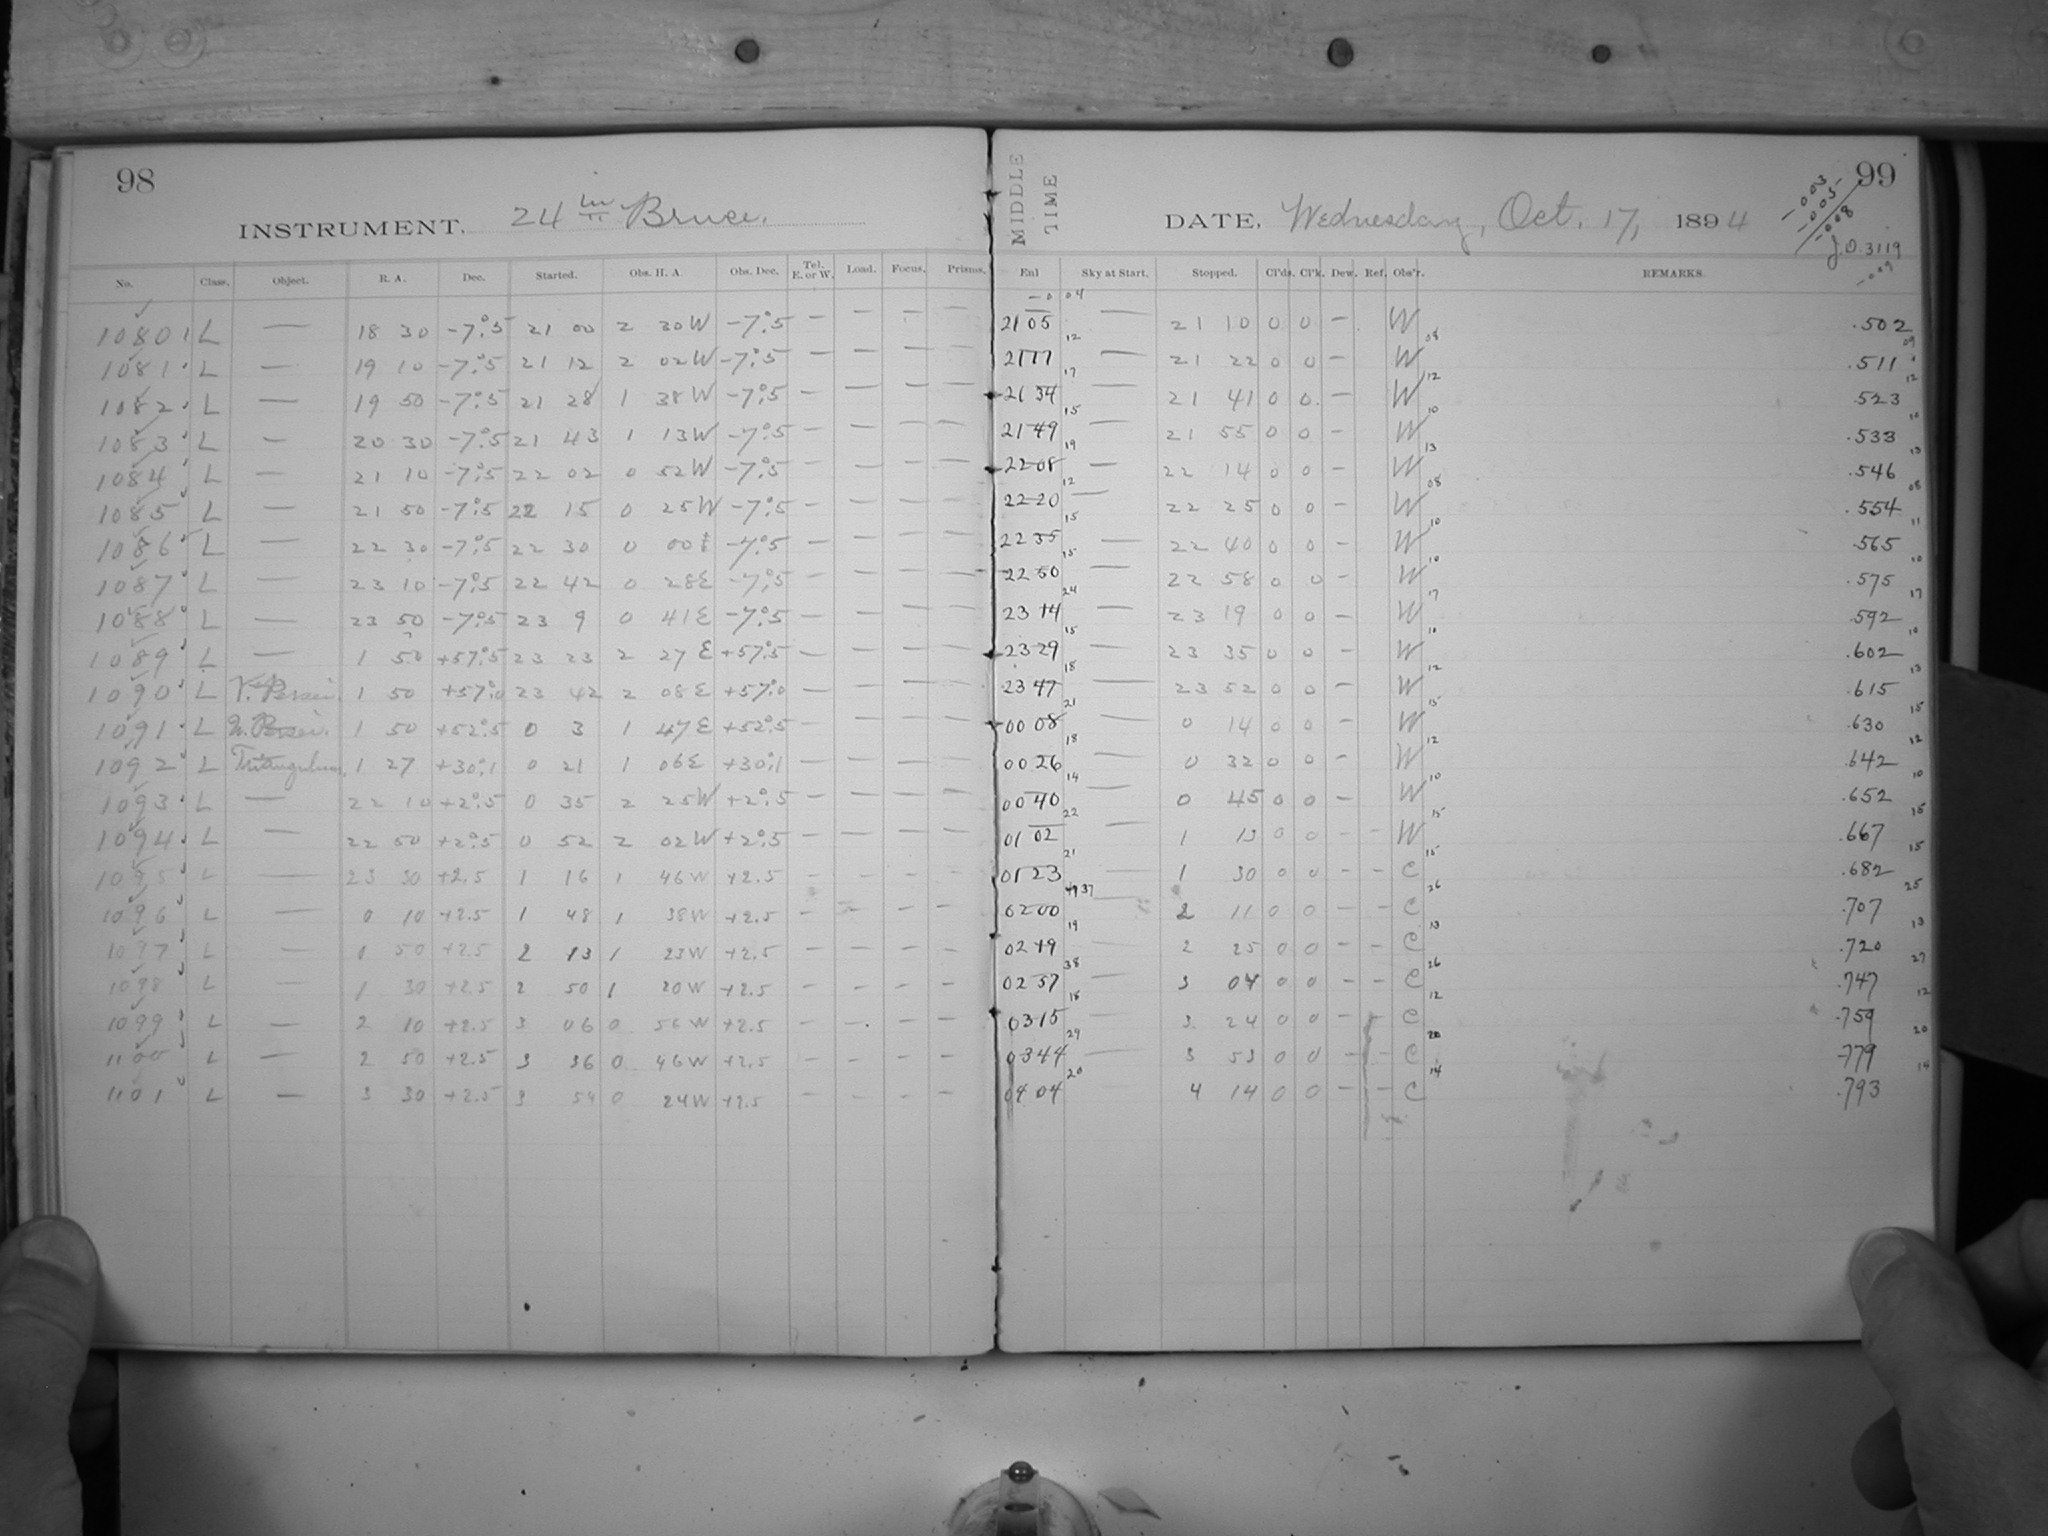 98
INSTRUMENT. 24 in Bruce.
No. Class. Object. R. A. Dec. Started. Obs. H. A. Obs. Dec. Tel. E. or W. Load. Focus. Prisms.
1080 L — 18 30 -7°.5 21 00 2 30W -7°.5 — — — —
1081 L — 19 10 -7°.5 21 12 2 02W -7°.5 — — — —
1082 L — 19 50 -7°.5 21 28 1 38W -7°.5 — — — —
1083 L — 20 30 -7°.5 21 43 1 13W -7°.5 — — — —
1084 L — 21 10 -7°.5 22 02 0 52W -7°.5 — — — —
1085 L — 21 50 -7°.5 22 15 0 25W -7°.5 — — — —
1086 L — 22 30 -7°.5 22 30 0 00E -7°.5 — — — —
1087 L — 23 10 -7°.5 22 42 0 28E -7°.5 — — — —
1088 L — 23 50 -7°.5 23 9 0 41E -7°.5 — — — —
1089 L — 1 50 +57°.5 23 23 2 27E +57°.5 — — — —
1090 L V. Persei. 1 50 +57°.0 23 42 2 08E +57°.0 — — — —
1091 L U. Persei. 1 50 +52°.5 0 3 1 47E +52°.5 — — — —
1092 L 1 27 +30°.1 0 21 1 06E +30°.1 — — — —
1093 L — 22 10 +2°.5 0 35 2 25W +2°.5 — — — —
1094 L — 22 50 +2°.5 0 52 2 02W +2°.5 — — — —
1095 L — 23 30 +2.5 1 16 1 46W +2.5 — — — —
1096 L — 0 10 +2.5 1 48 1 38W +2.5 — — — —
1097 L — 0 50 +2.5 2 13 1 23W +2.5 — — — —
1098 L — 1 30 +2.5 2 50 1 20W +2.5 — — — —
1099 L — 2 10 +2.5 3 06 0 56W +2.5 — — — —
1100 L — 2 50 +2.5 3 36 0 46W +2.5 — — — —
1101 L — 3 30 +2.5 3 54 0 24W +2.5 — — — —
99
MIDDLE TIME
DATE, Wednesday, Oct. 17, 1894
-003
-005
-008
J.D. 3119
-009
Enl Sky at Start. Stopped. Cl'ds. Cl'k. Dew. Ref. Obs'r. REMARKS.
-0 04
2105 — 21 10 0 0 — W .502
12 08 09
2117 — 21 22 0 0 — W .511
17 12 12
2134 — 21 41 0 0. — W .523
15 10 10
2149 — 21 55 0 0 — W .533
19 13 13
2208 — 22 14 0 0 — W .546
12 08 08
2220 — 22 25 0 0 — W .554
15 10 11
2235 — 22 40 0 0 — W .565
15 10 10
2250 — 22 58 0 0 — W .575
24 17 17
2314 — 23 19 0 0 — W .592
15 10 10
2329 — 23 35 0 0 — W .602
18 12 13
2347 — 23 52 0 0 — W .615
21 15 15
0008 — 0 14 0 0 — W .630
18 12 12
0026 — 0 32 0 0 — W .642
14 10 10
0040 — 0 45 0 0 — W .652
22 15 15
0102 — 1 13 0 0 — — W .667
21 15 15
0123 — 1 30 0 0 — — C .682
37 26 25
0200 — 2 11 0 0 — — C .707
19 13 13
0219 — 2 25 0 0 — — C .720
38 26 27
0257 — 3 04 0 0 — — C .747
18 12 12
0315 — 3 24 0 0 — — C .759
29 20 20
0344 — 3 53 0 0 — — C .779
20 14 14
0404 4 14 0 0 — — C .793